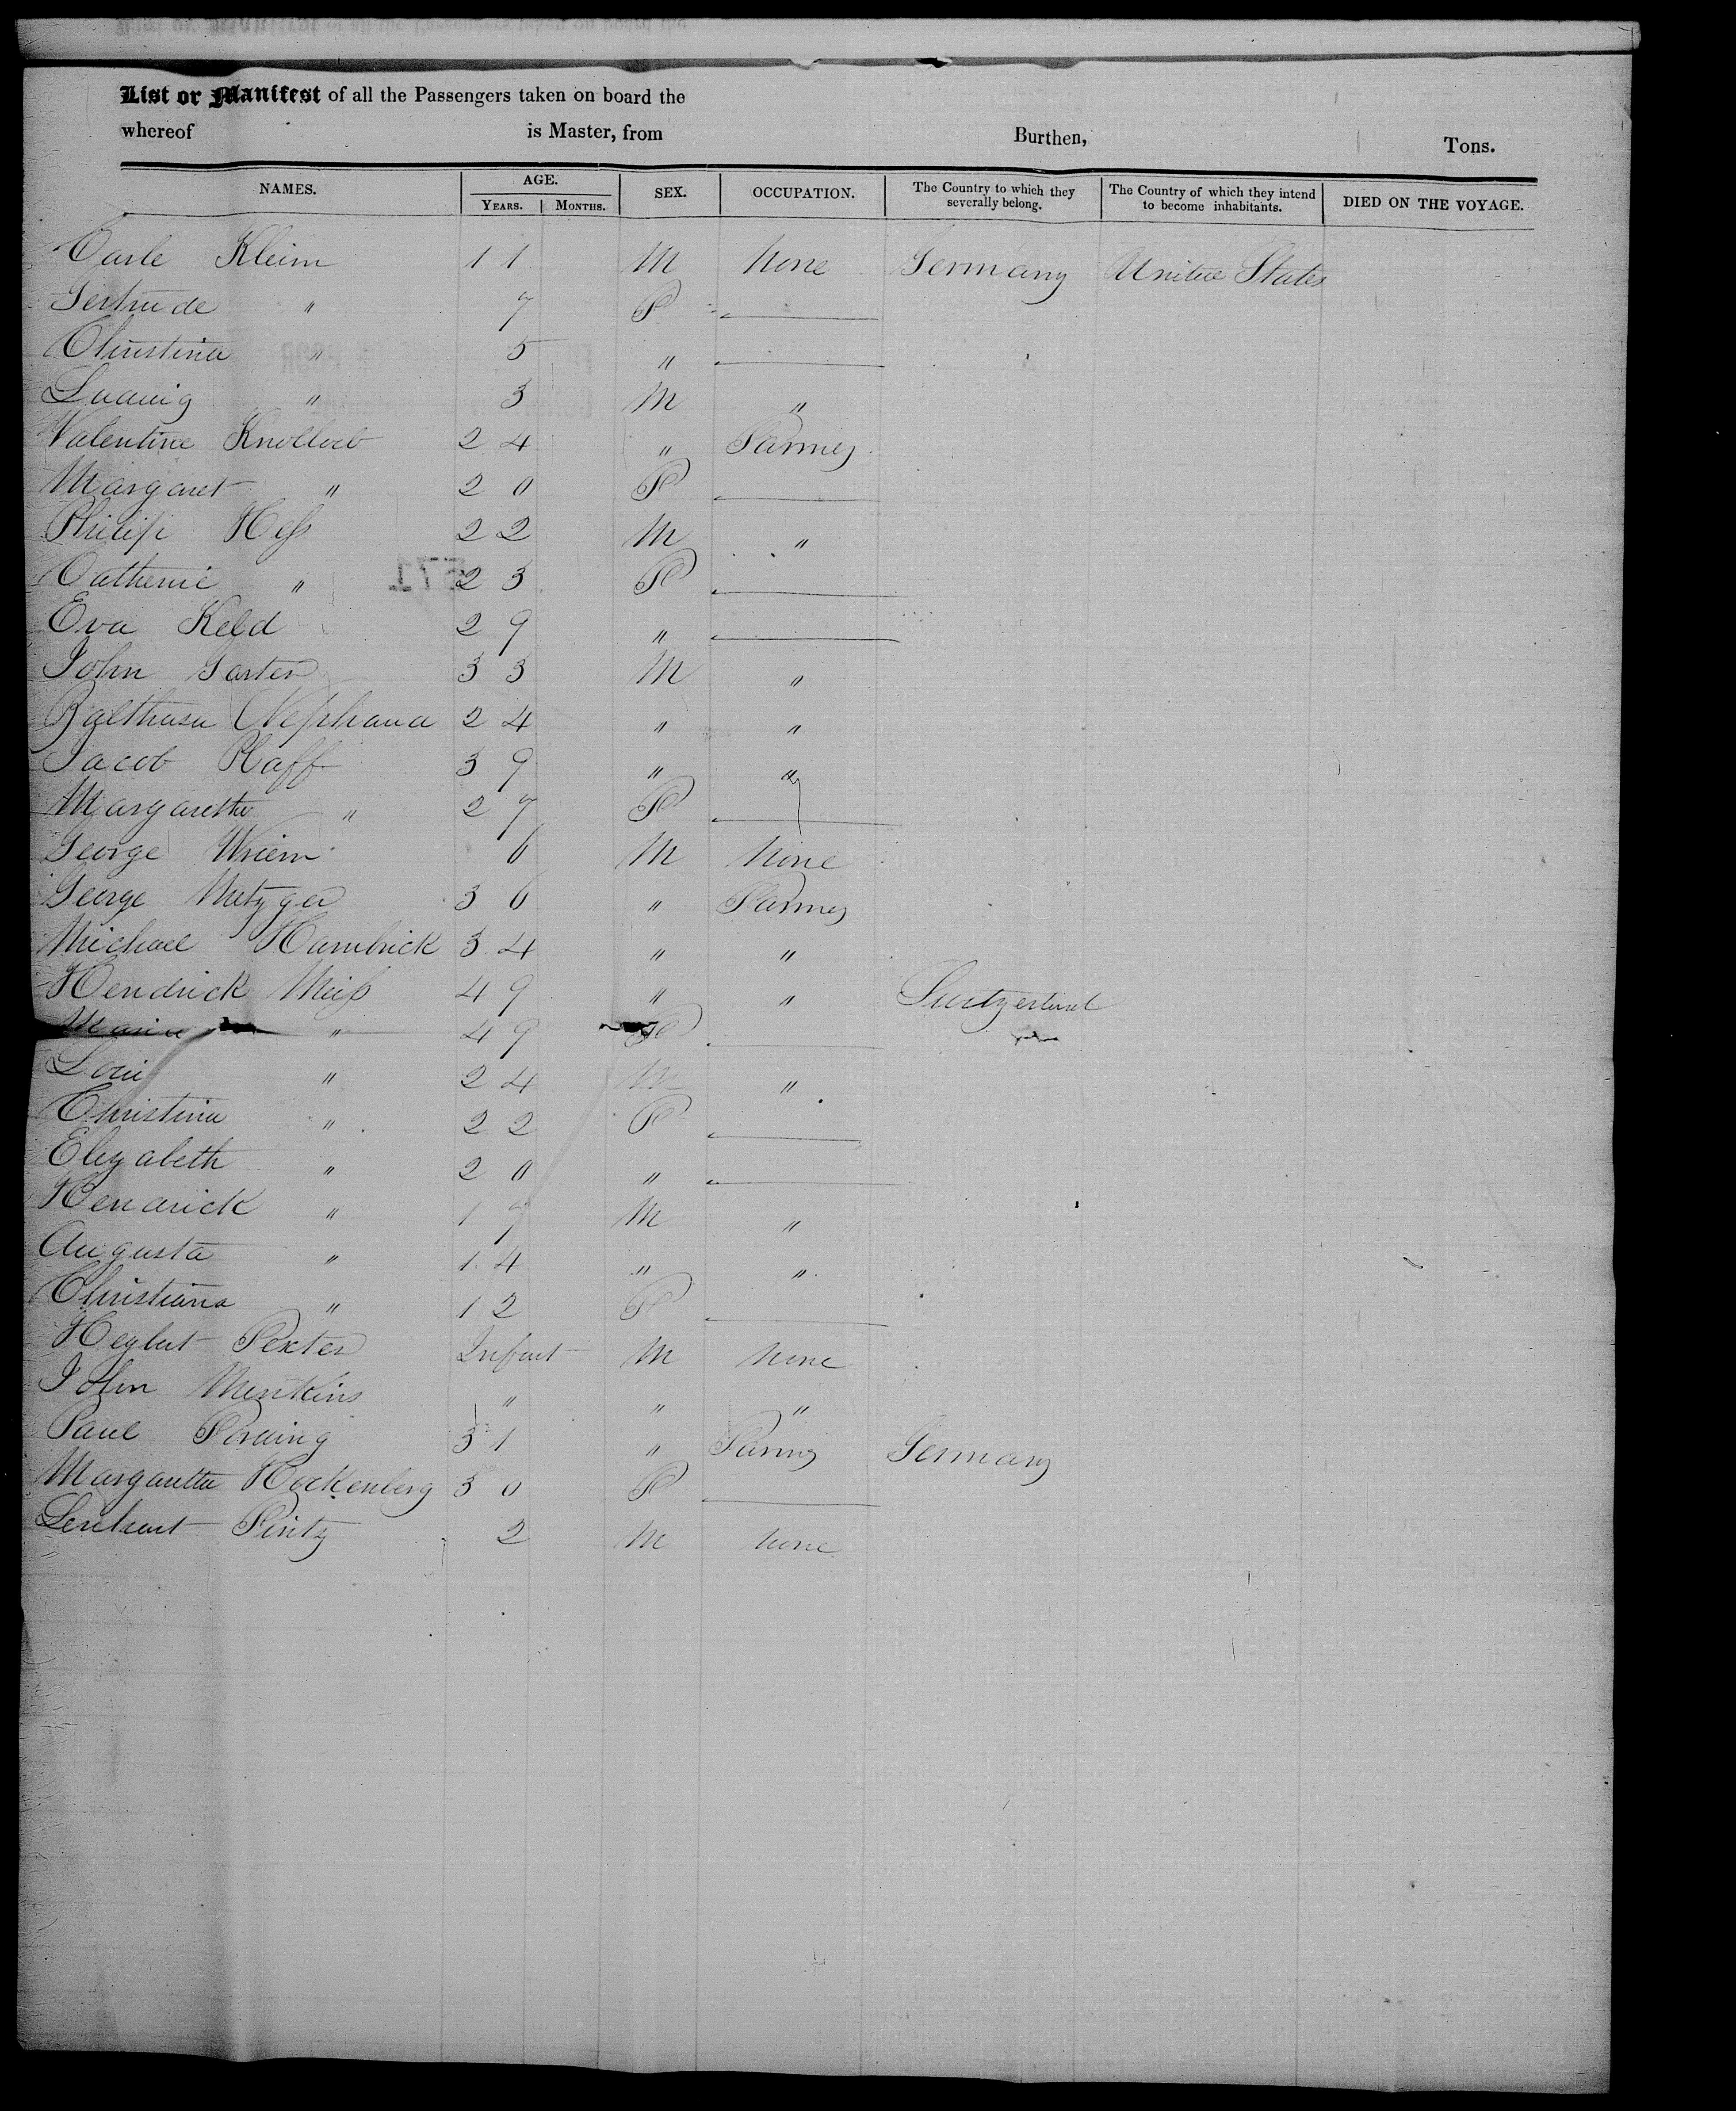 List or Manifest of all the Passengers taken on board the
whereof is Master, from Burthen, Tons.
NAMES. AGE. YEARS. MONTHS. SEX. OCCUPATION. The Country to which they severally belong. The Country of which they intend to become inhabitants. DIED ON THE VOYAGE.
Carle Kleim 11 M None Germany United States
Gertrude " 7 F
Christina " 5 "
Ludwig " 3 M "
Valentine 24 " Farmer
Margaret " 20 F
Philip Heſs 22 M "
Catherine " 23 F
Eva Keld 29 "
John 33 M "
24 " "
Jacob Pfaff 39 " "
Margaretha " 27 F
George 6 M None
George Metzger 36 " Farmer
Michael Hambrick 34 " "
Hendrick 49 " " Switzerland
Maria " 49 F
" 24 M "
Christina " 22 F
Elizabeth " 20 "
Hendrick " 17 M "
Augusta " 14 " "
Christiana " 12 F
Infant M None
John " " "
Paul 31 " Farmer Germany
Margaretta Hockenberg 30 F
2 M None